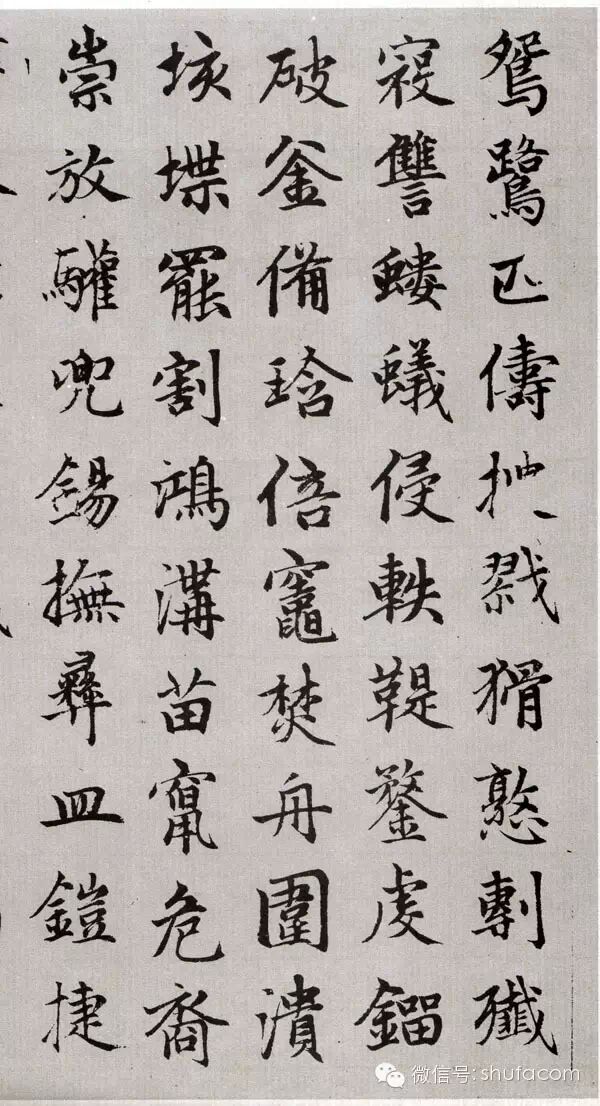 鴛鷺匹儔戮猾憝剸殲
寇讐螻蟻侵軼鞮鍪虔鎦
破釜備琀倍竈焚舟圍潰
垓堞罷割鴻溝苗竄危裔
崇放驩兜錫撫彝皿鎧捷
微信号: shufacom